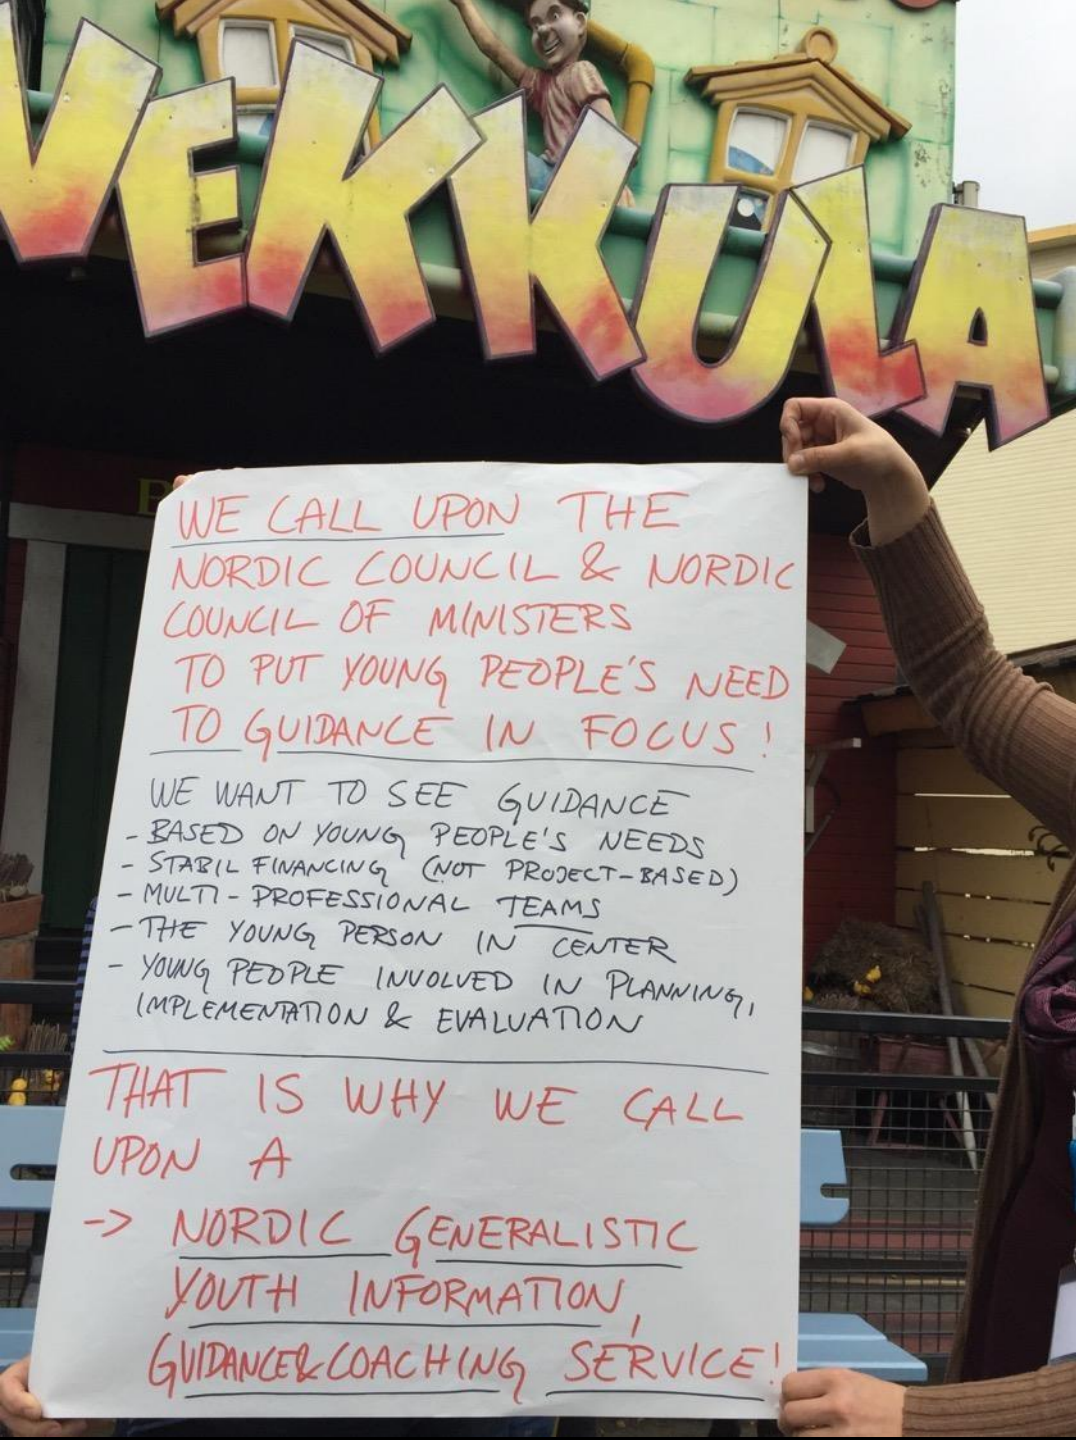 VEKKULA
WE CALL UPON THE
NORDIC COUNCIL & NORDIC
COUNCIL OF MINISTERS
TO PUT YOUNG PEOPLE'S NEED
TO GUIDANCE IN FOCUS!
WE WANT TO SEE GUIDANCE
- BASED ON YOUNG PEOPLE'S NEEDS
- STABIL FINANCING (NOT PROJECT-BASED)
- MULTI-PROFESSIONAL TEAMS
- THE YOUNG PERSON IN CENTER
- YOUNG PEOPLE INVOLVED IN PLANNING,
IMPLEMENTATION & EVALUATION
THAT IS WHY WE CALL
UPON A
-> NORDIC GENERALISTIC
YOUTH INFORMATION,
GUIDANCE&COACHING SERVICE!